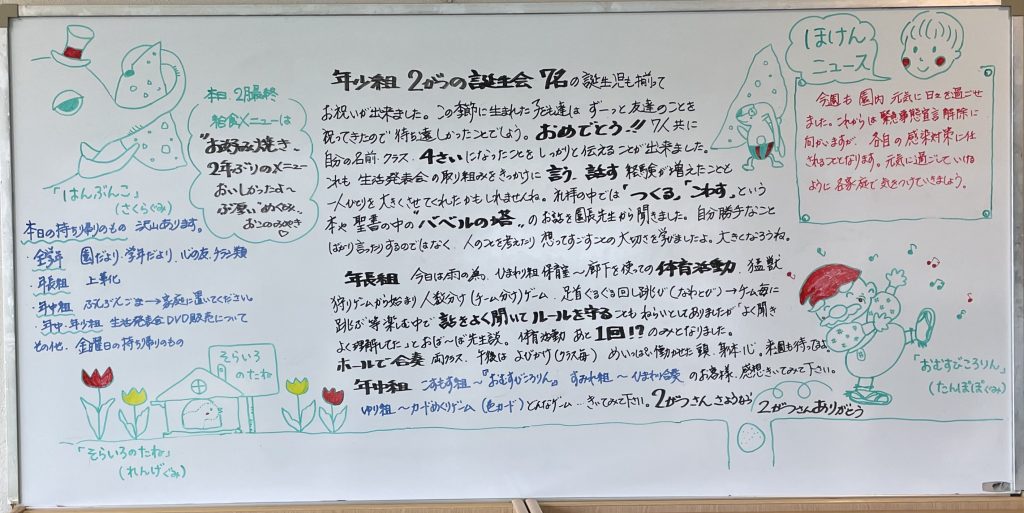 本日、2月最終
給食メニューは
"お好み焼き"
2年ぶりのメニュー
おいしかったね〜
「はんぶんこ」
(さくらぐみ)
本日の持ち帰りのもの 沢山あります。
・全学年 園だより・学年だより、心の友、チラシ類
・年長組 上草化
・年中組 ぶんぶんごま→家庭に置いてください
・年中・年少組 生活発表会DVD販売について
その他、金曜日の持ち帰りのもの
そらいろ
のたね
「そらいろのたね」
(れんげぐみ)
年少組 2がつの誕生会 7名の誕生児も揃って
お祝いが出来ました。この季節に生まれた子ども達は ずーっと友達のことを
祝ってきたので待ち遠しかったことでしょう。おめでとう!! 7人共に
自分の名前、クラス、4さいになったことをしっかりと伝えることが出来ました。
これも 生活発表会の取り組みをきっかけに 言う、話す 経験が増えたことと
一人ひとりを大きくさせてくれたかもしれませんね。礼拝の中では「つくる」「こわす」という
本や 聖書の中の "バベルの塔" のお話を園長先生から聞きました。自分勝手なこと
ばかり言ったりするのではなく 人のことを考えたり 想ってすごすことの大切さを学びましたよ。大きくなろうね。
年長組 今日は雨の為、ひまわり組保育室〜廊下を使っての 体育活動、猛獣
狩りゲームから始まり 人数分け(チーム分け)ゲーム、足首ぐるぐる回し跳び(なわとび)→ゲーム毎に
跳び等楽しむ中で 話をよく聞いて ルールを守る ことも ねらいとしてありましたが「よく聞き
よく理解してた」とおば〜ば先生談。体育活動 あと 1回!? のみとなりました。
ホールで合奏 両クラス、午後は よびかけ(クラス毎) めいっぱい働かせた 頭、身体、心。来週も待ってるよ。
年中組 こすもす組〜『おむすびころりん』 すみれ組〜ひまわり合奏 のお客様、感想きいてみて下さい。
ゆり組〜カードめくりゲーム(色カード) どんなゲーム…きいてみて下さい。2がつさん さようなら
2がつさんありがとう
ほけん
ニュース
今週も 園内 元気に日々を過ごせ
ました。これからは 緊急事態宣言解除に
向かいますが、各自の感染対策に任
されることとなります。元気に過ごしていける
ように 各家庭で気をつけていきましょう。
「おむすびころりん」
(たんぽぽぐみ)